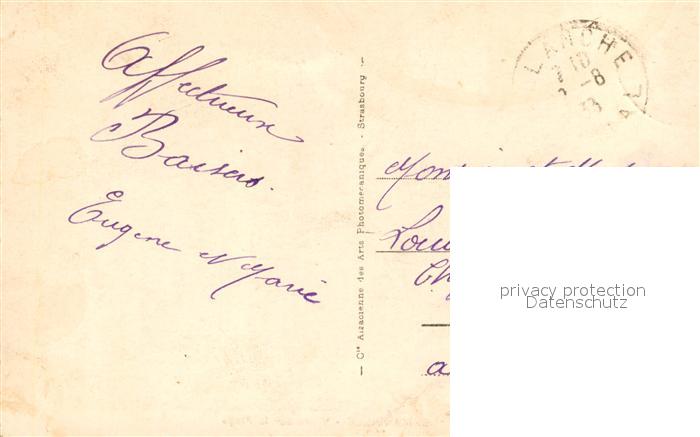 Affectueux
Baisers.
Eugène et Marie
— Cie Alsacienne des Arts Photomécaniques. - Strasbourg —
LANCHE
10
-8
33
Monsieur et
Loui
a
privacy protection
Datenschutz